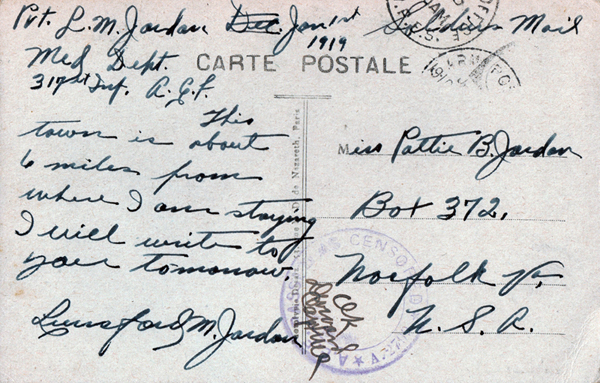 Pvt. L. M. Jordan Dec. Jan 1st 1919 Soldiers Mail
Med Dept.
317st Inf. A.E.F.
CARTE POSTALE
This
town is about
6 miles from
where I am staying
I will write to
you tomorrow.
Lunsford M. Jordan
de Nazareth, Paris
Miss Pattie B. Jordan
Box 372,
Norfolk Va,
U. S. A.
CENSOR
OK